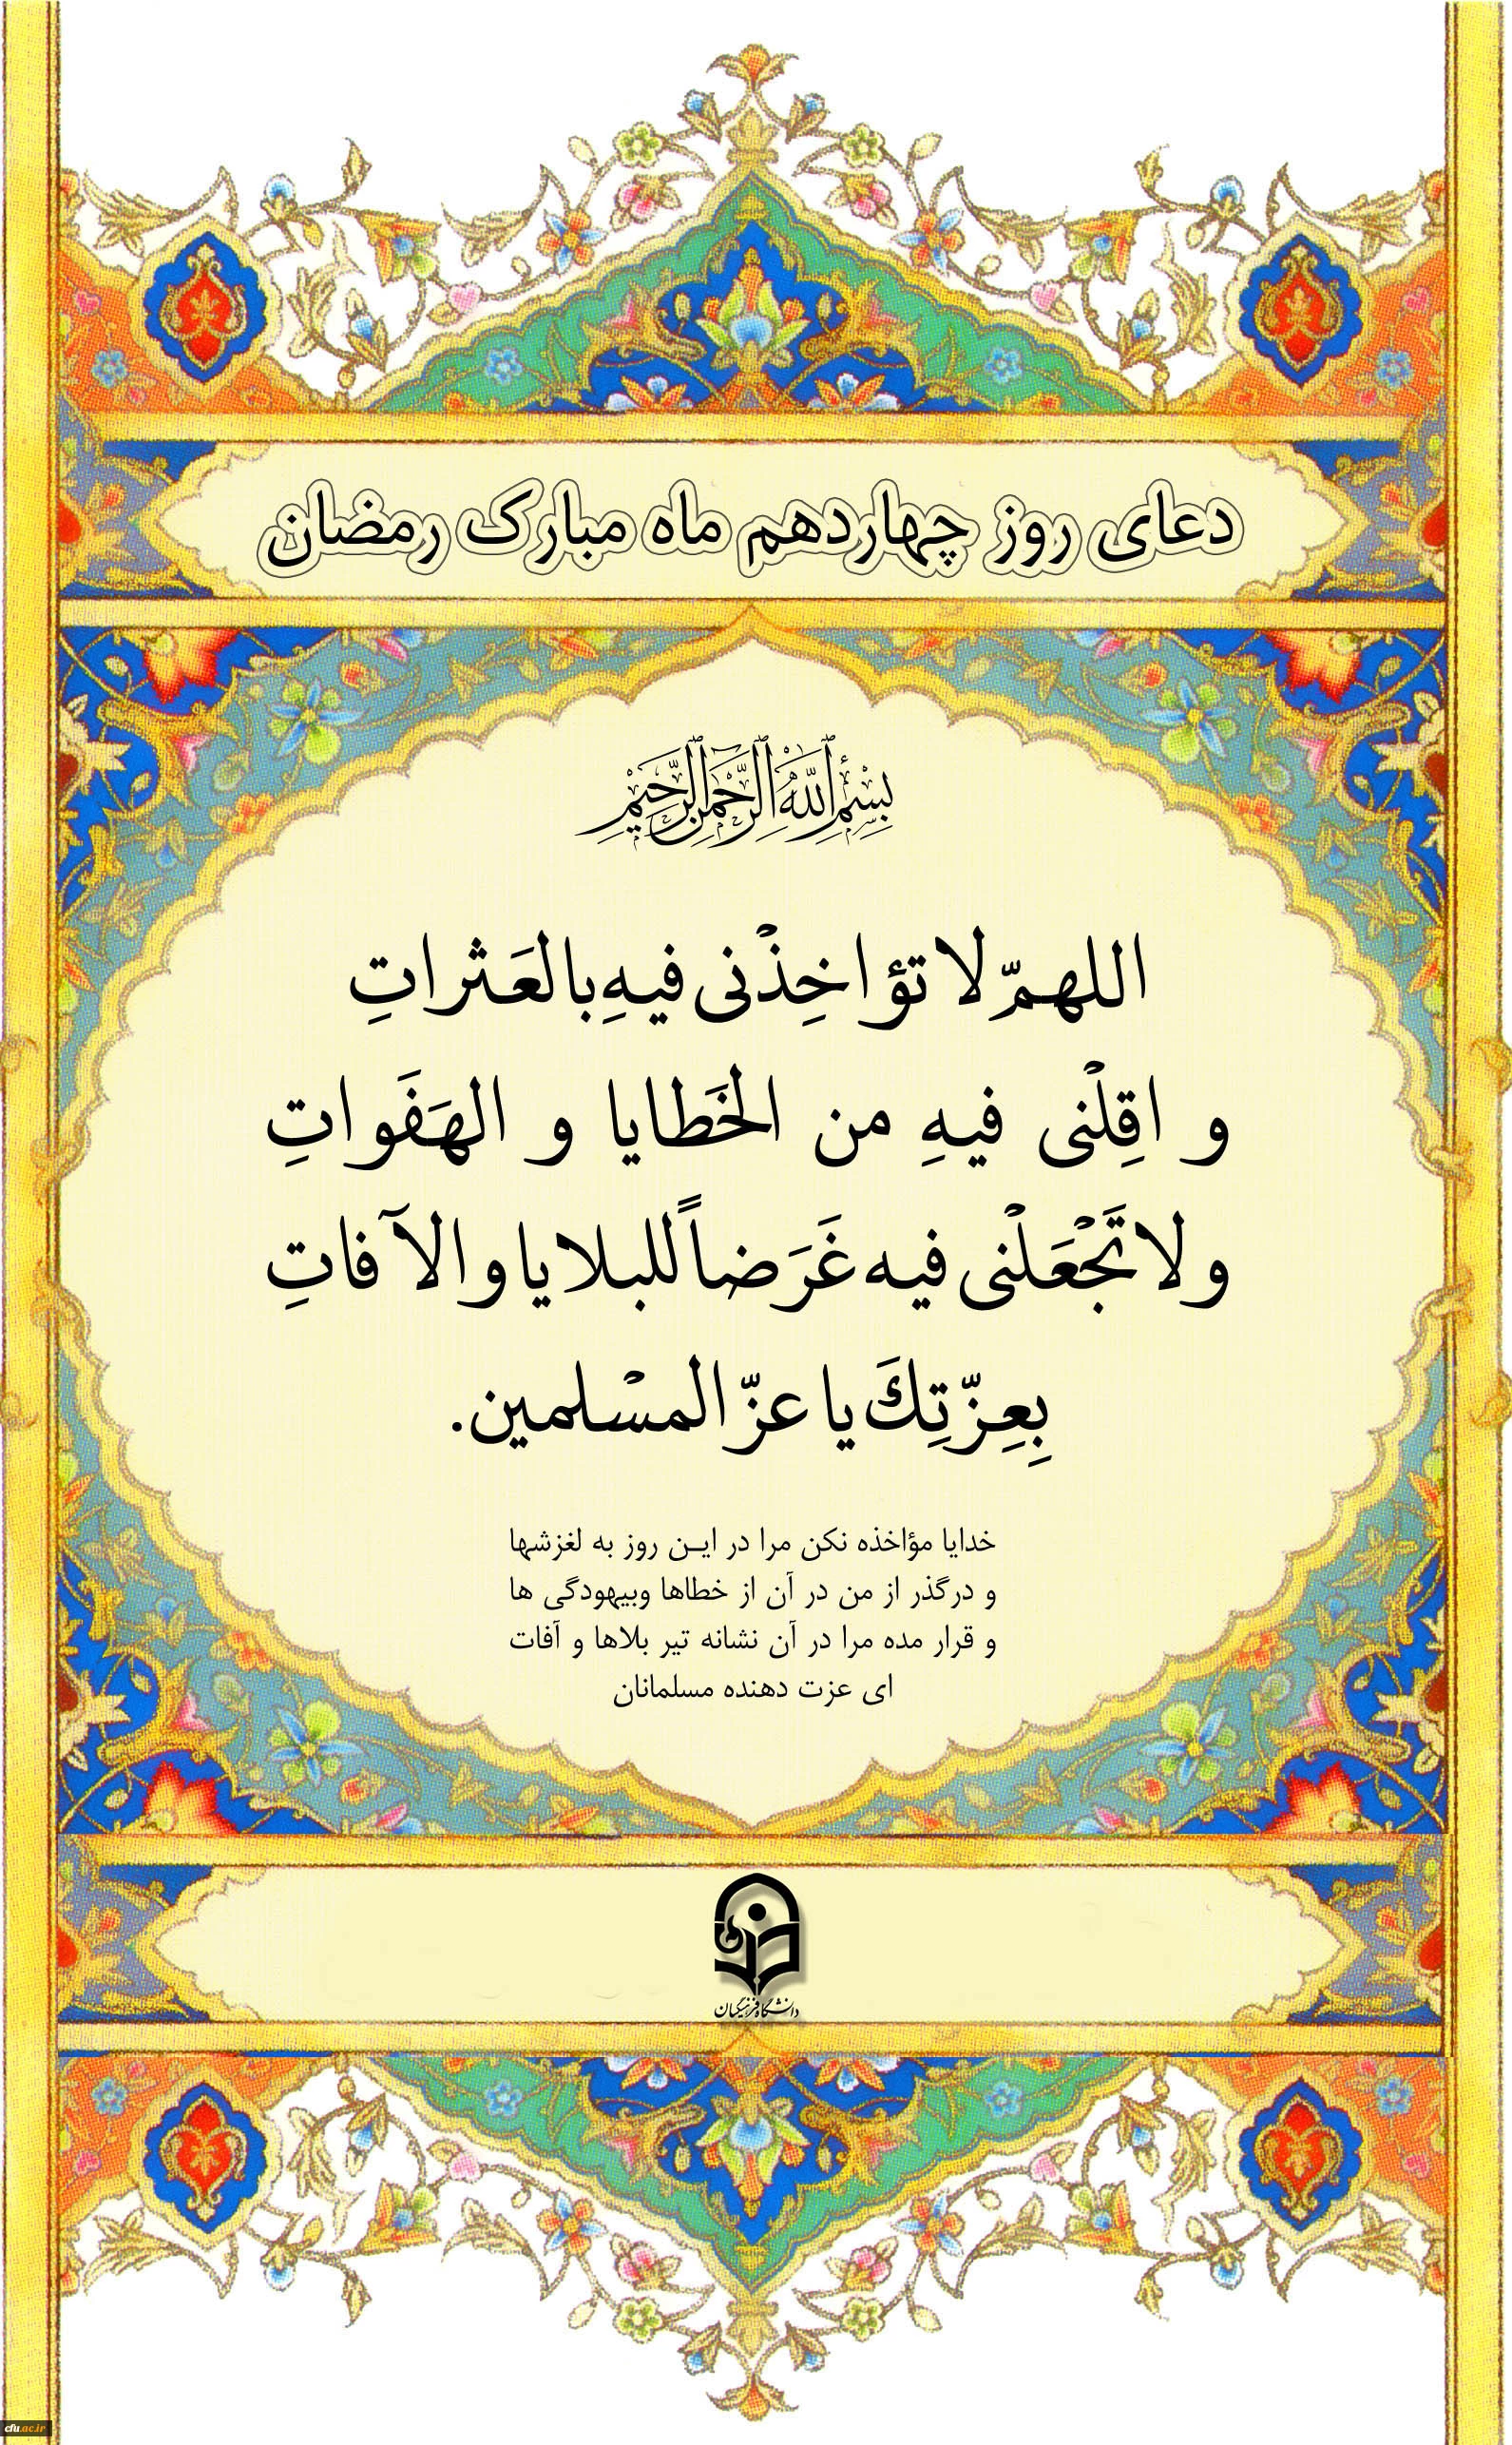 دعای روز چهاردهم ماه مبارک رمضان
بِسْمِ ٱللَّهِ ٱلرَّحْمَٰنِ ٱلرَّحِيمِ
اللهمّ لا تؤاخِذْنی فیهِ بالعَثراتِ
و اقِلْنی فیهِ من الخَطایا و الهَفَواتِ
ولا تَجْعَلْنی فیه غَرَضاً للبلایا والآفاتِ
بِعِزّتِكَ یا عزّ المسْلمین.
خدایا مؤاخذه نکن مرا در ایـن روز به لغزشها
و درگذر از من در آن از خطاها وبیهودگی ها
و قرار مده مرا در آن نشانه تیر بلاها و آفات
ای عزت دهنده مسلمانان
دانشگاه فرهنگیان
cfu.ac.ir